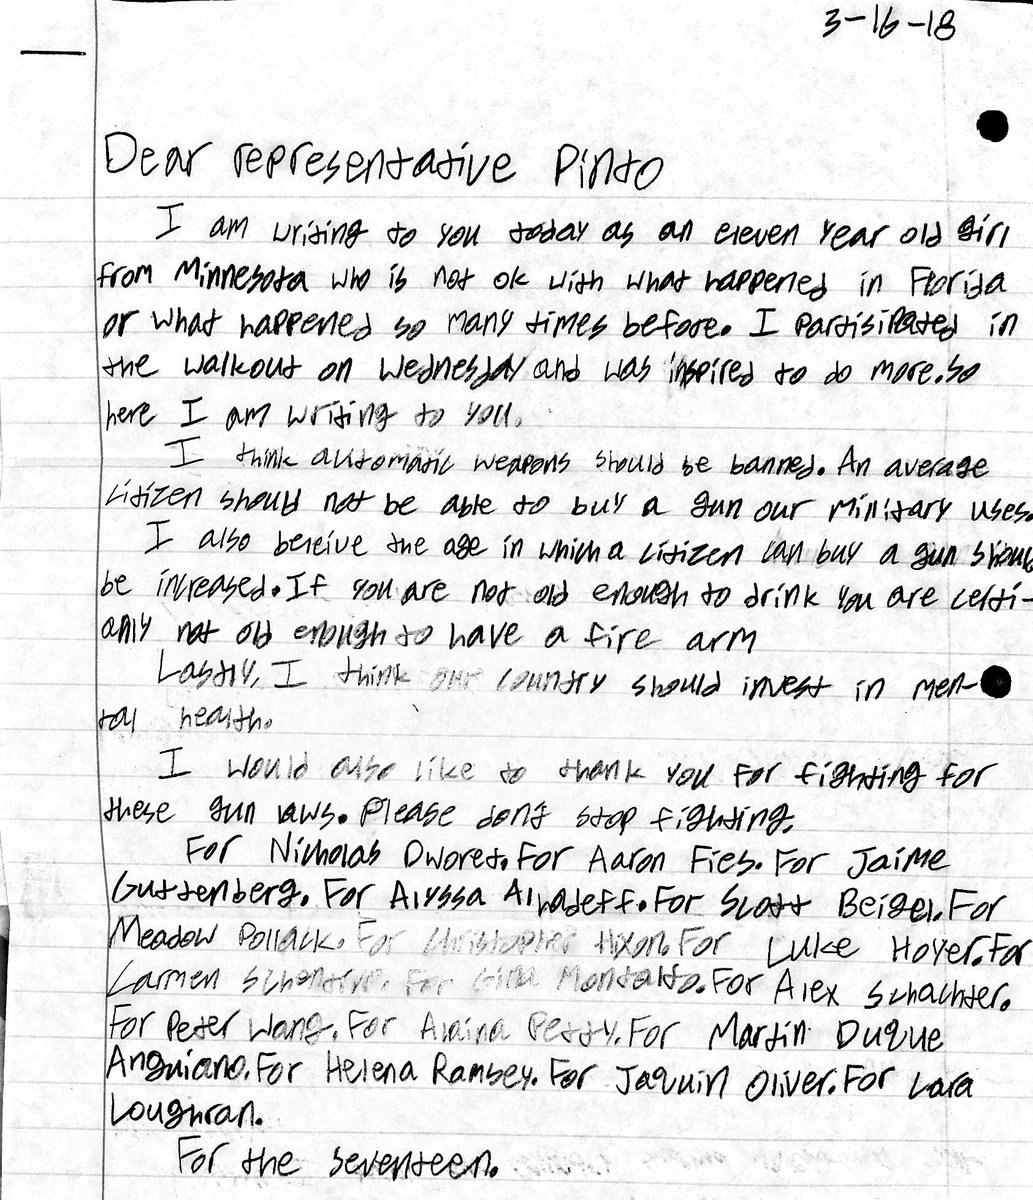 3-16-18
Dear representative Pinto
I am writing to you today as an eleven year old girl
from Minnesota who is not ok with what happened in Florida
or what happened so many times before. I partisipated in
the walkout on Wednesday and was inspired to do more. so
here I am writing to you.
I think automatic weapons should be banned. An average
citizen should not be able to buy a gun our minitary uses.
I also beleive the age in which a citizen can buy a gun should
be increased. If you are not old enough to drink you are certi-
anly not old enough to have a fire arm
Lastly, I think our country should invest in men-
tal health.
I would also like to thank you for fighting for
these gun laws. Please don't stop fighting.
For Nicholas Dworet. For Aaron Fies. For Jaime
Guttenberg. For Alyssa Alhadeff. For Scott Beigel. For
Meadow Pollack. For Christopher Hixon. For Luke Hoyer. For
Carmen Schentrup. For Gina Montalto. For Alex Schachter.
For Peter Wang. For Alaina Petty. For Martin Duque
Anguiano. For Helena Ramsey. For Jaquin Oliver. For Cara
Loughran.
For the seventeen.